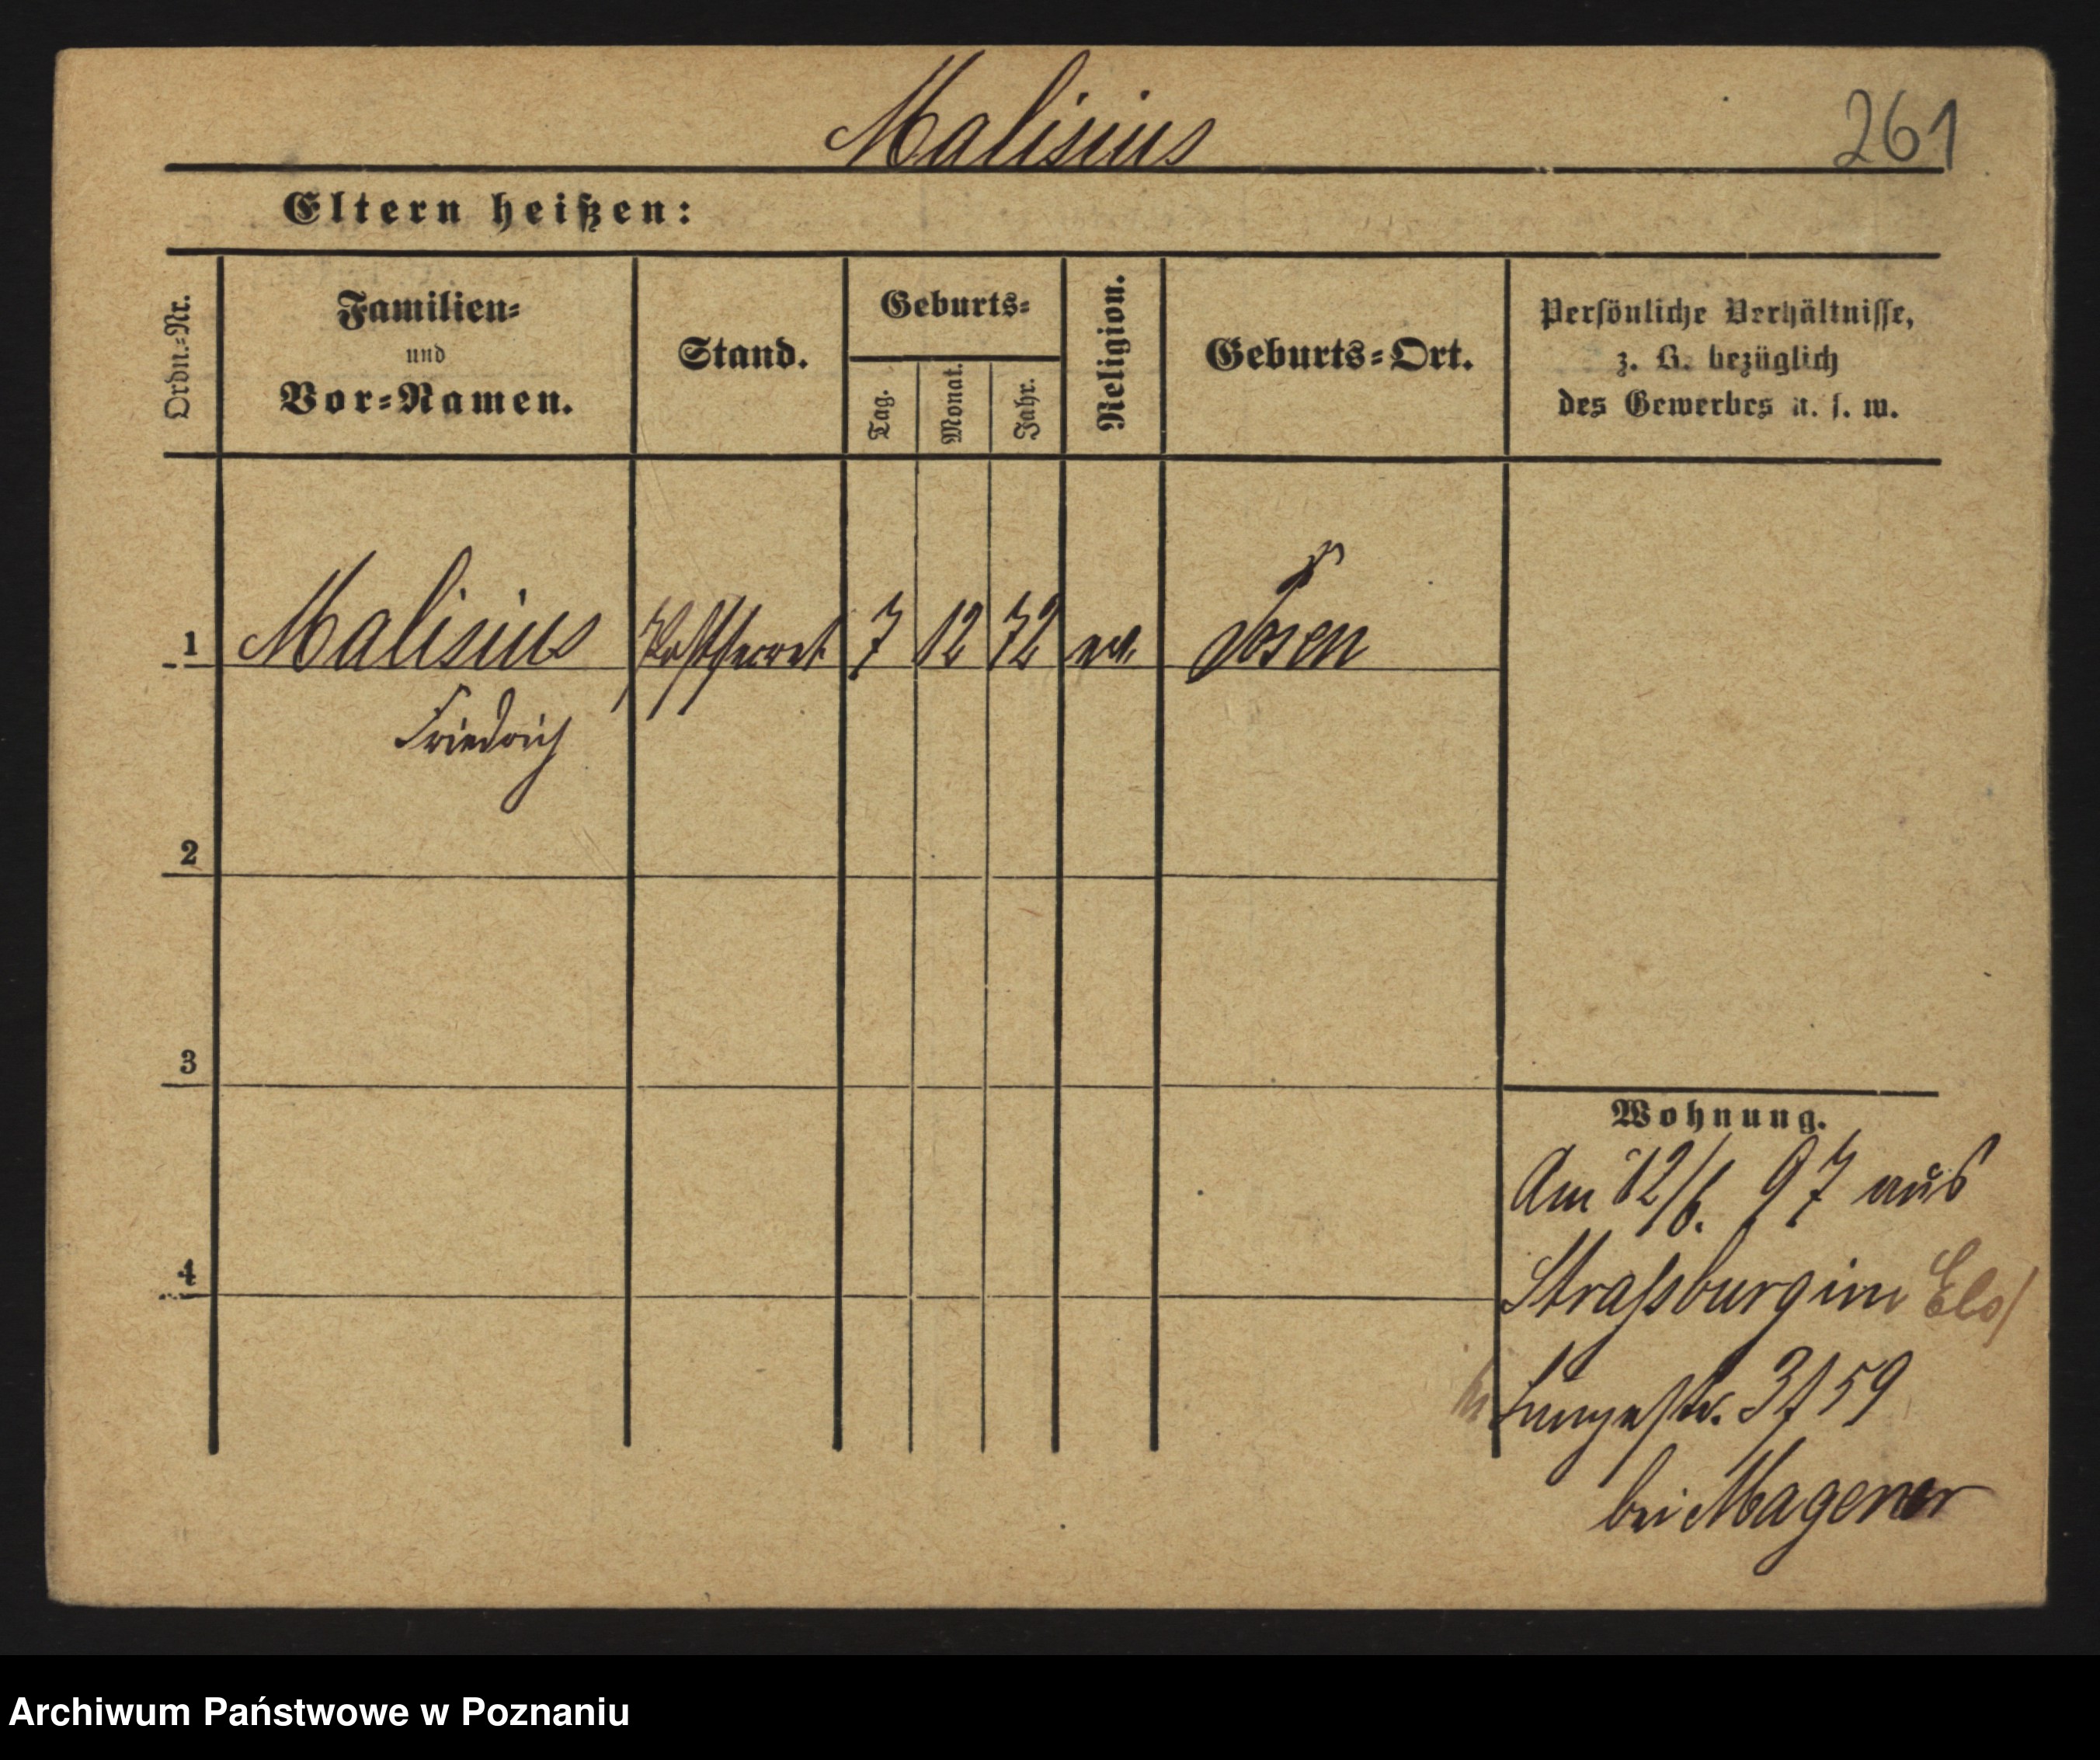 Malisius
261
Eltern heißen:
Ordn.-Nr.
Familien-
und
Vor-Namen.
Stand.
Geburts-
Tag.
Monat.
Jahr.
Religion.
Geburts-Ort.
Persönliche Verhältnisse,
z. B. bezüglich
des Gewerbes u. s. w.
1 Malisius Postsecret 7 12 72 ev. Posen
Friedrich
2
3
4
Wohnung.
Am 12/6. 97 aus
Strassburg im Els/
bei Magener
Archiwum Państwowe w Poznaniu